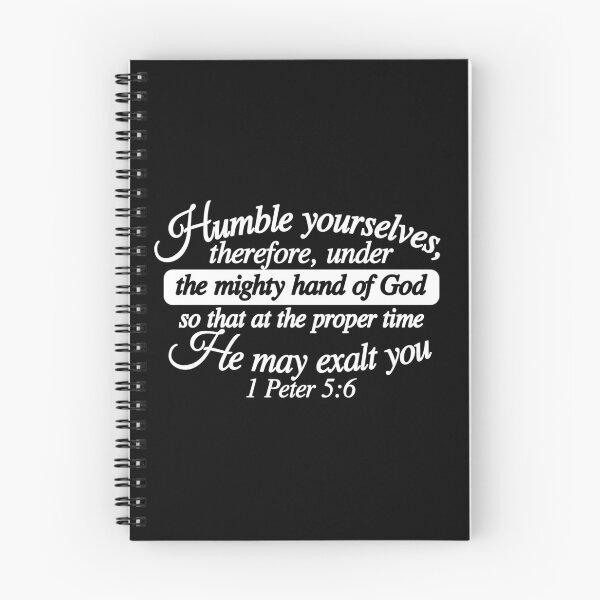 Humble yourselves,
therefore, under
the mighty hand of God
so that at the proper time
He may exalt you
1 Peter 5:6